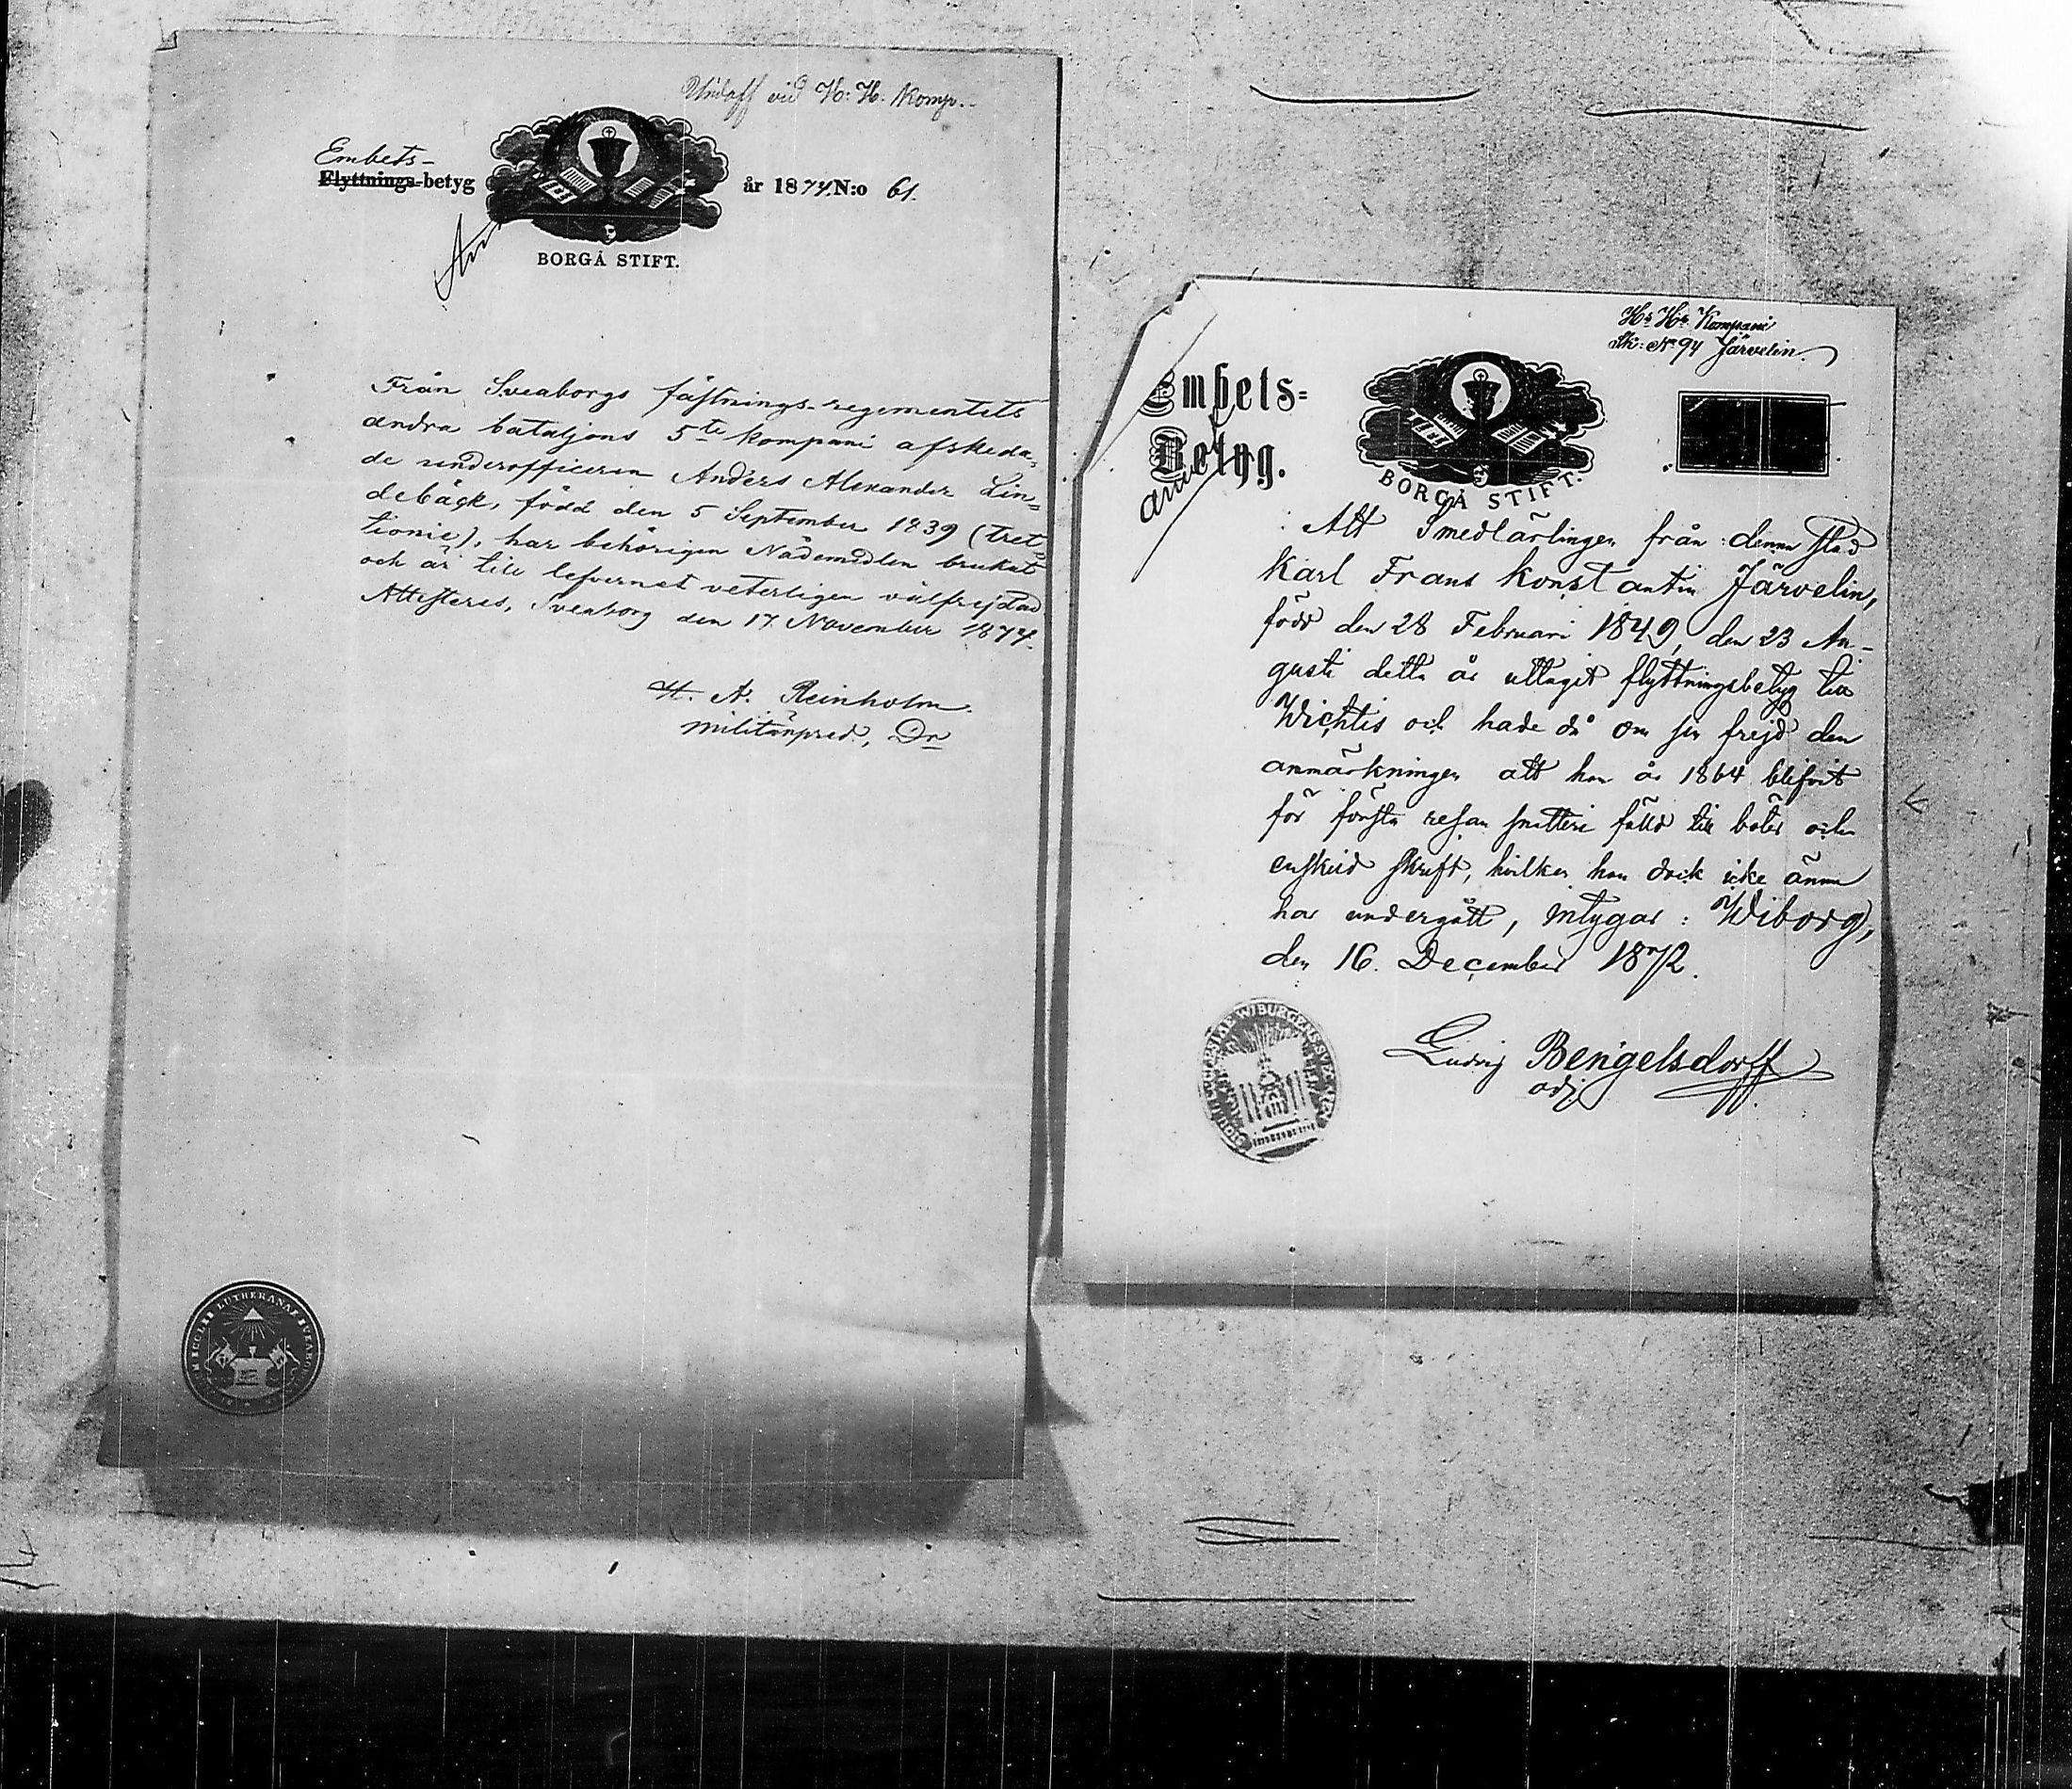 Undoff vid H: H. Komp.
Embets-
Flyttnings-betyg
år 1874. N:o 61.
BORGÅ STIFT.
Från Sveaborgs fästnings-regementets
andra bataljons 5te kompani afskeda-
de underofficeren Anders Alexander Lin-
debäck, född den 5 September 1839 (tret-
tionie), har behörigen Nådemedlen brukat
och är till lefvernet veterligen välfrejdad
Attesteras, Sveaborg den 17 November 1874.
H. A. Reinholm.
militärpred., Dr
LUTHERANAE
Hr Hr Kompani
Sk: No 94 Järvelin.
Embets-
Betyg.
BORGÅ STIFT.
Att Smedlärlingen från denna stad
Karl Frans Konstantin Järvelin,
född den 28 Februari 1849, den 23 Au-
gusti detta år uttagit flyttningsbetyg till
Wichtis och hade då om sin frejd den
anmärkningen att han år 1864 blifvit
för första resan snatteri fälld till böter och
enskild skrift, hvilken han dock icke ännu
har undergått, intygar: Wiborg,
den 16. December 1872.
Ludvig Bengelsdorff
adj.